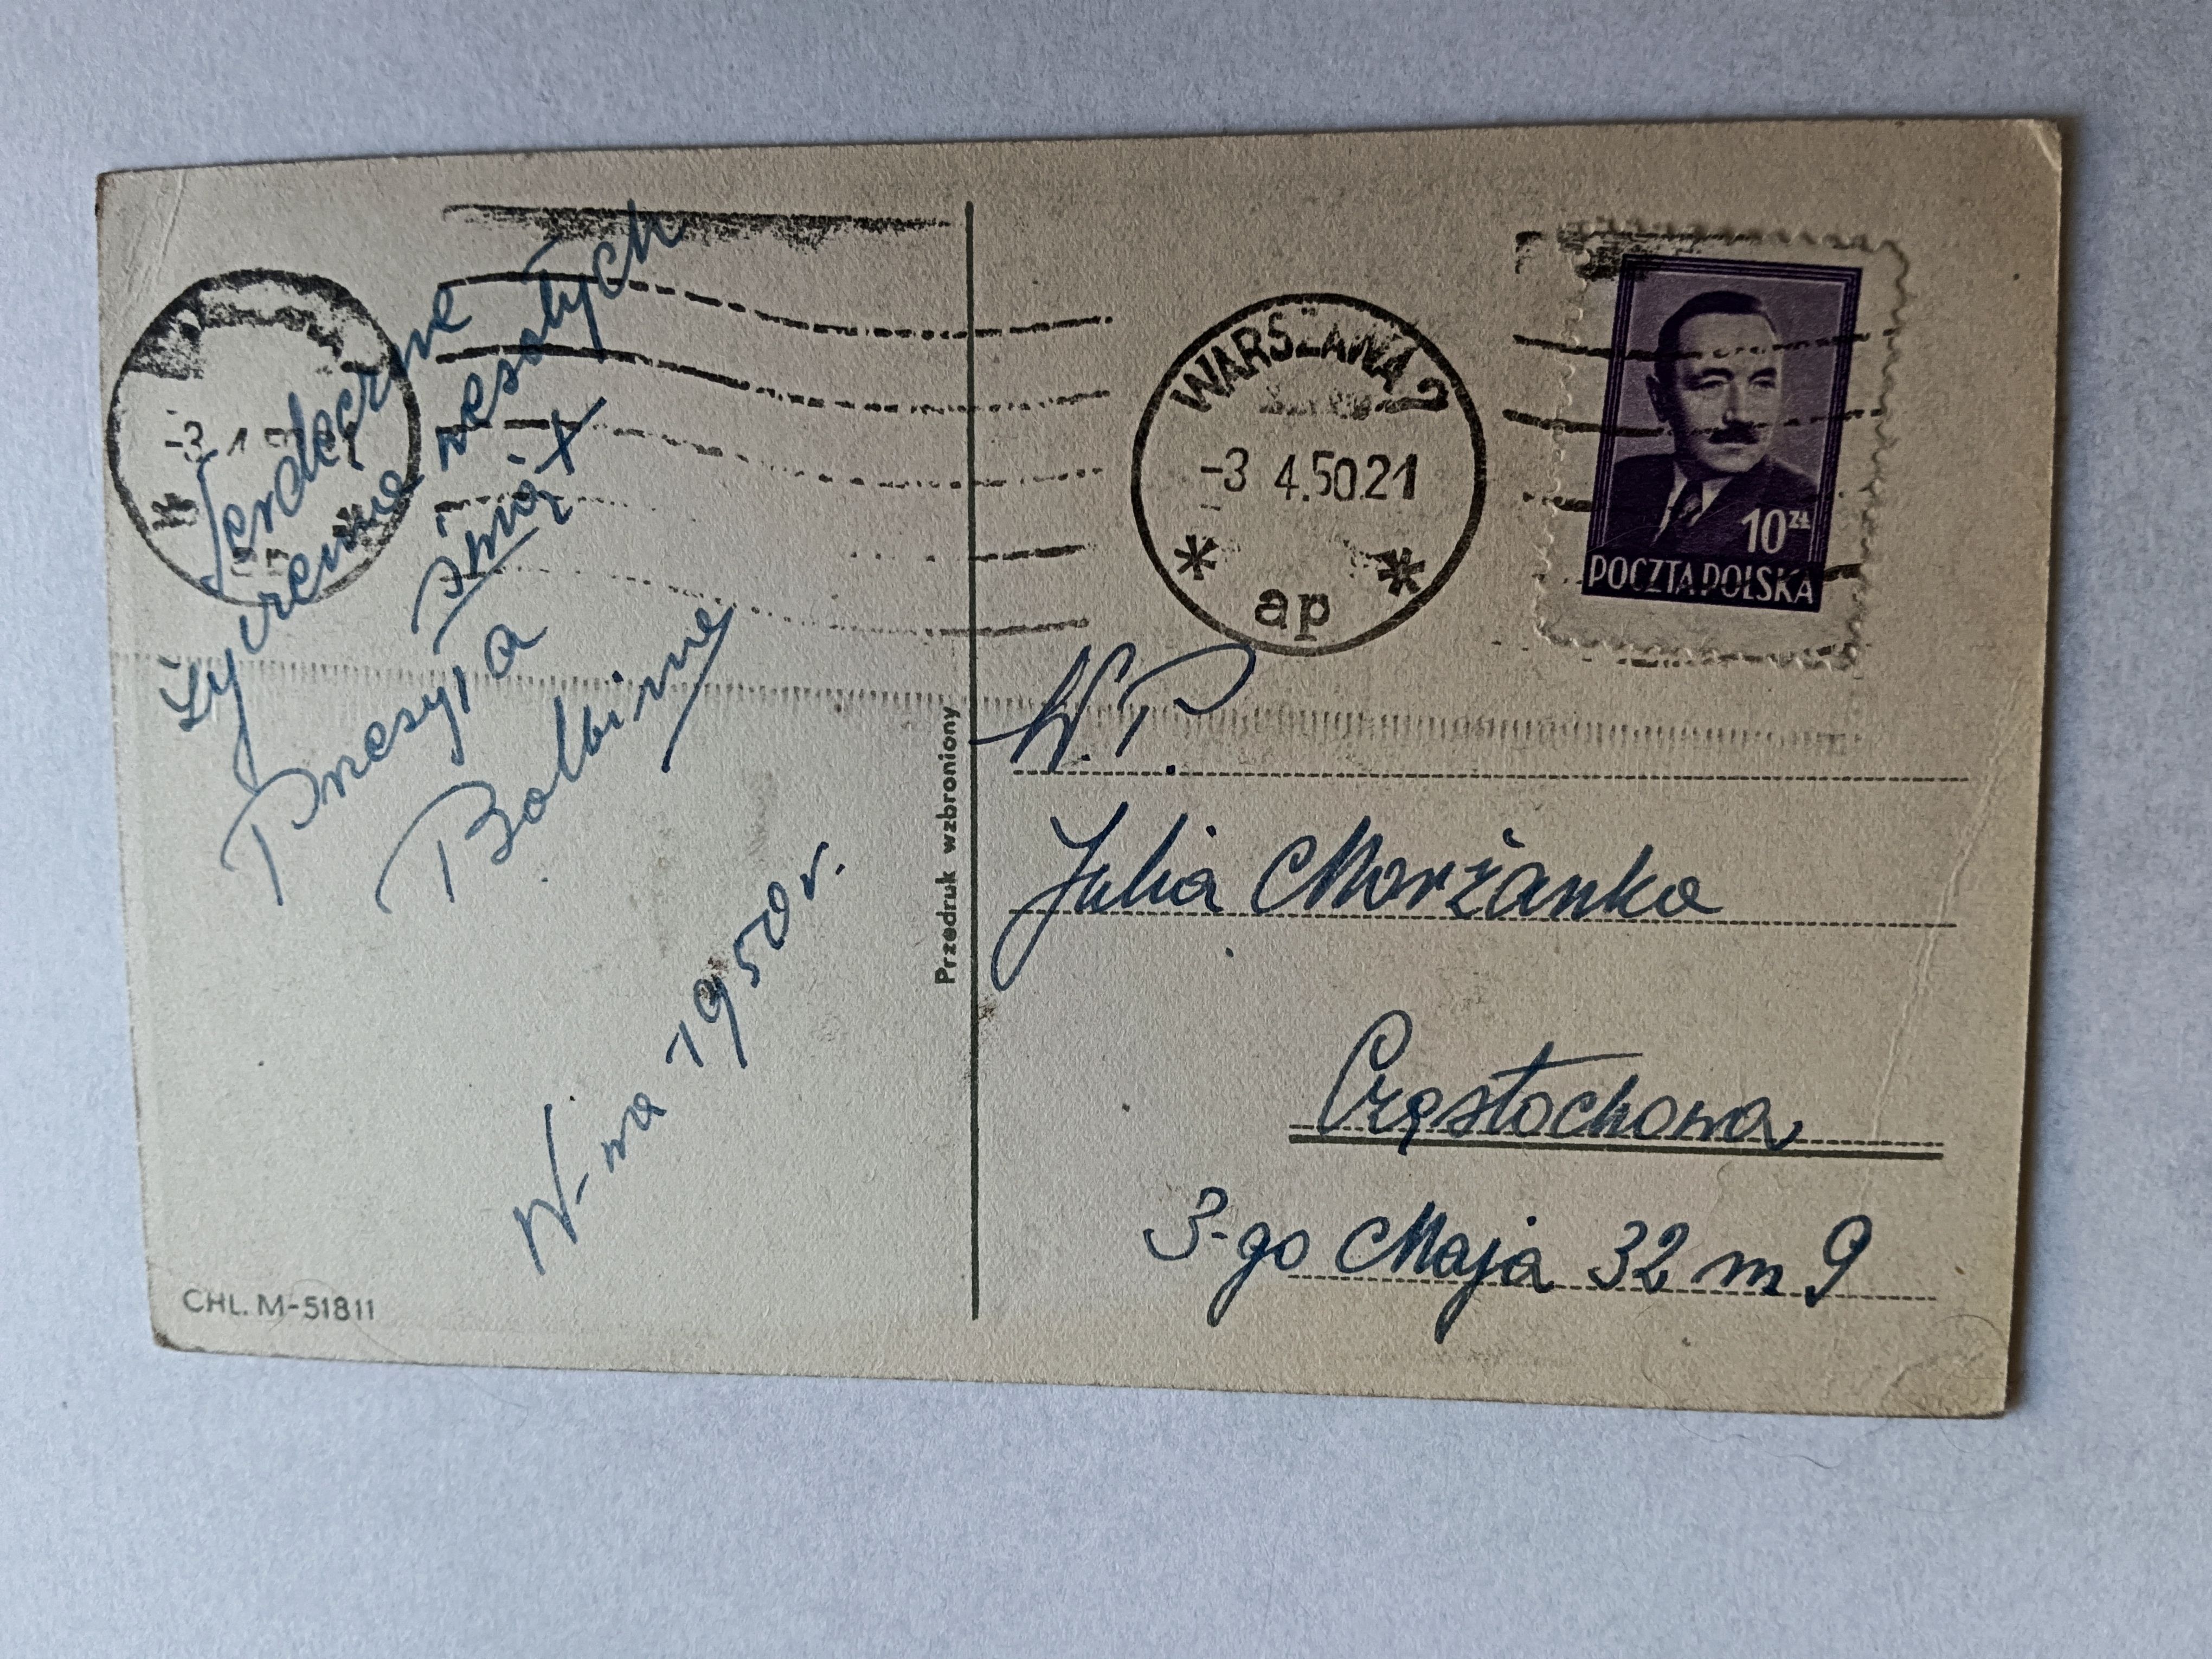 Serdeczne
życzenie wesołych
świąt
Przesyła
Balbina
W-wa 1950 r.
CHL. M-51811
Przedruk wzbroniony
WARSZAWA 2
-3 4.50.21
* ap *
10 zł
POCZTA POLSKA
W. P.
Julia Marżanka
Częstochowa
3-go Maja 32 m 9